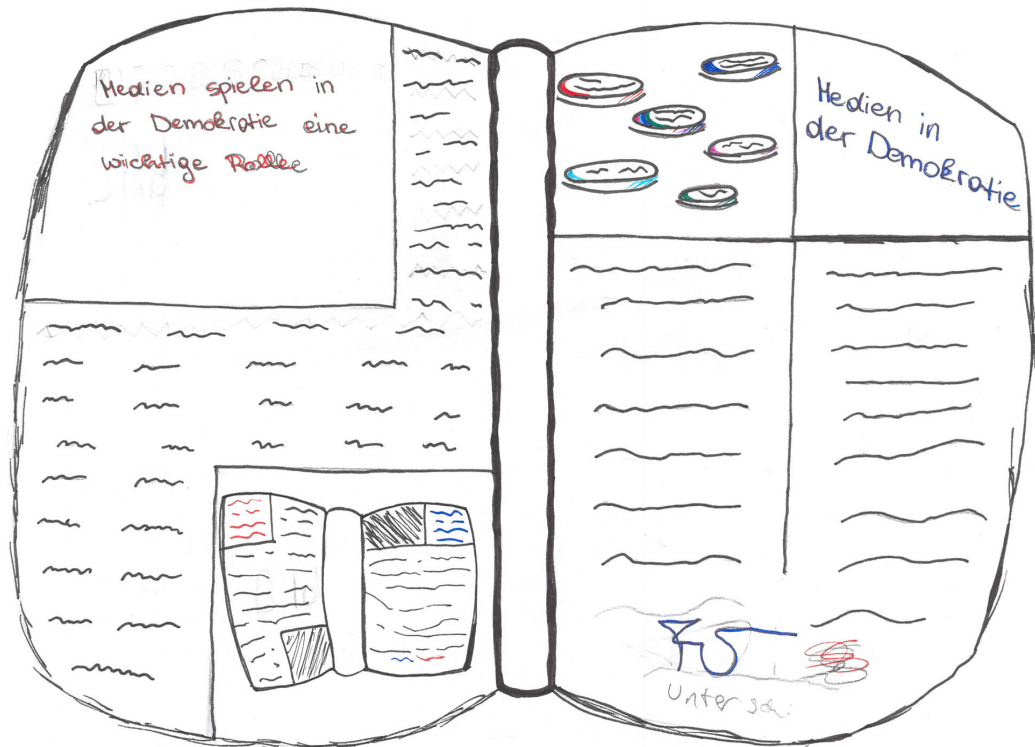 Medien spielen in
der Demokratie eine
wichtige Rolle
Medien in
der Demokratie
Untersch